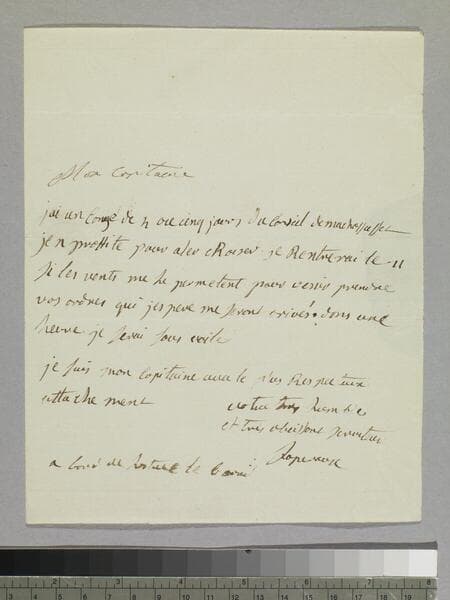 Mon capitaine
jai un Congé de 4 ou cinq jours du Conseil de machassuset
je n proffite pour aler croiser je Rentrerai le 11
Si les vents me le permetent pour venir prendre
vos ordres qui jespere me seront arivés. dans une
heure je serai sous voile
je suis mon capitaine avec le plus Respectueux
attachement votre tres humble
et tres obeissant serviteur
Laperouse
a bord de le 6